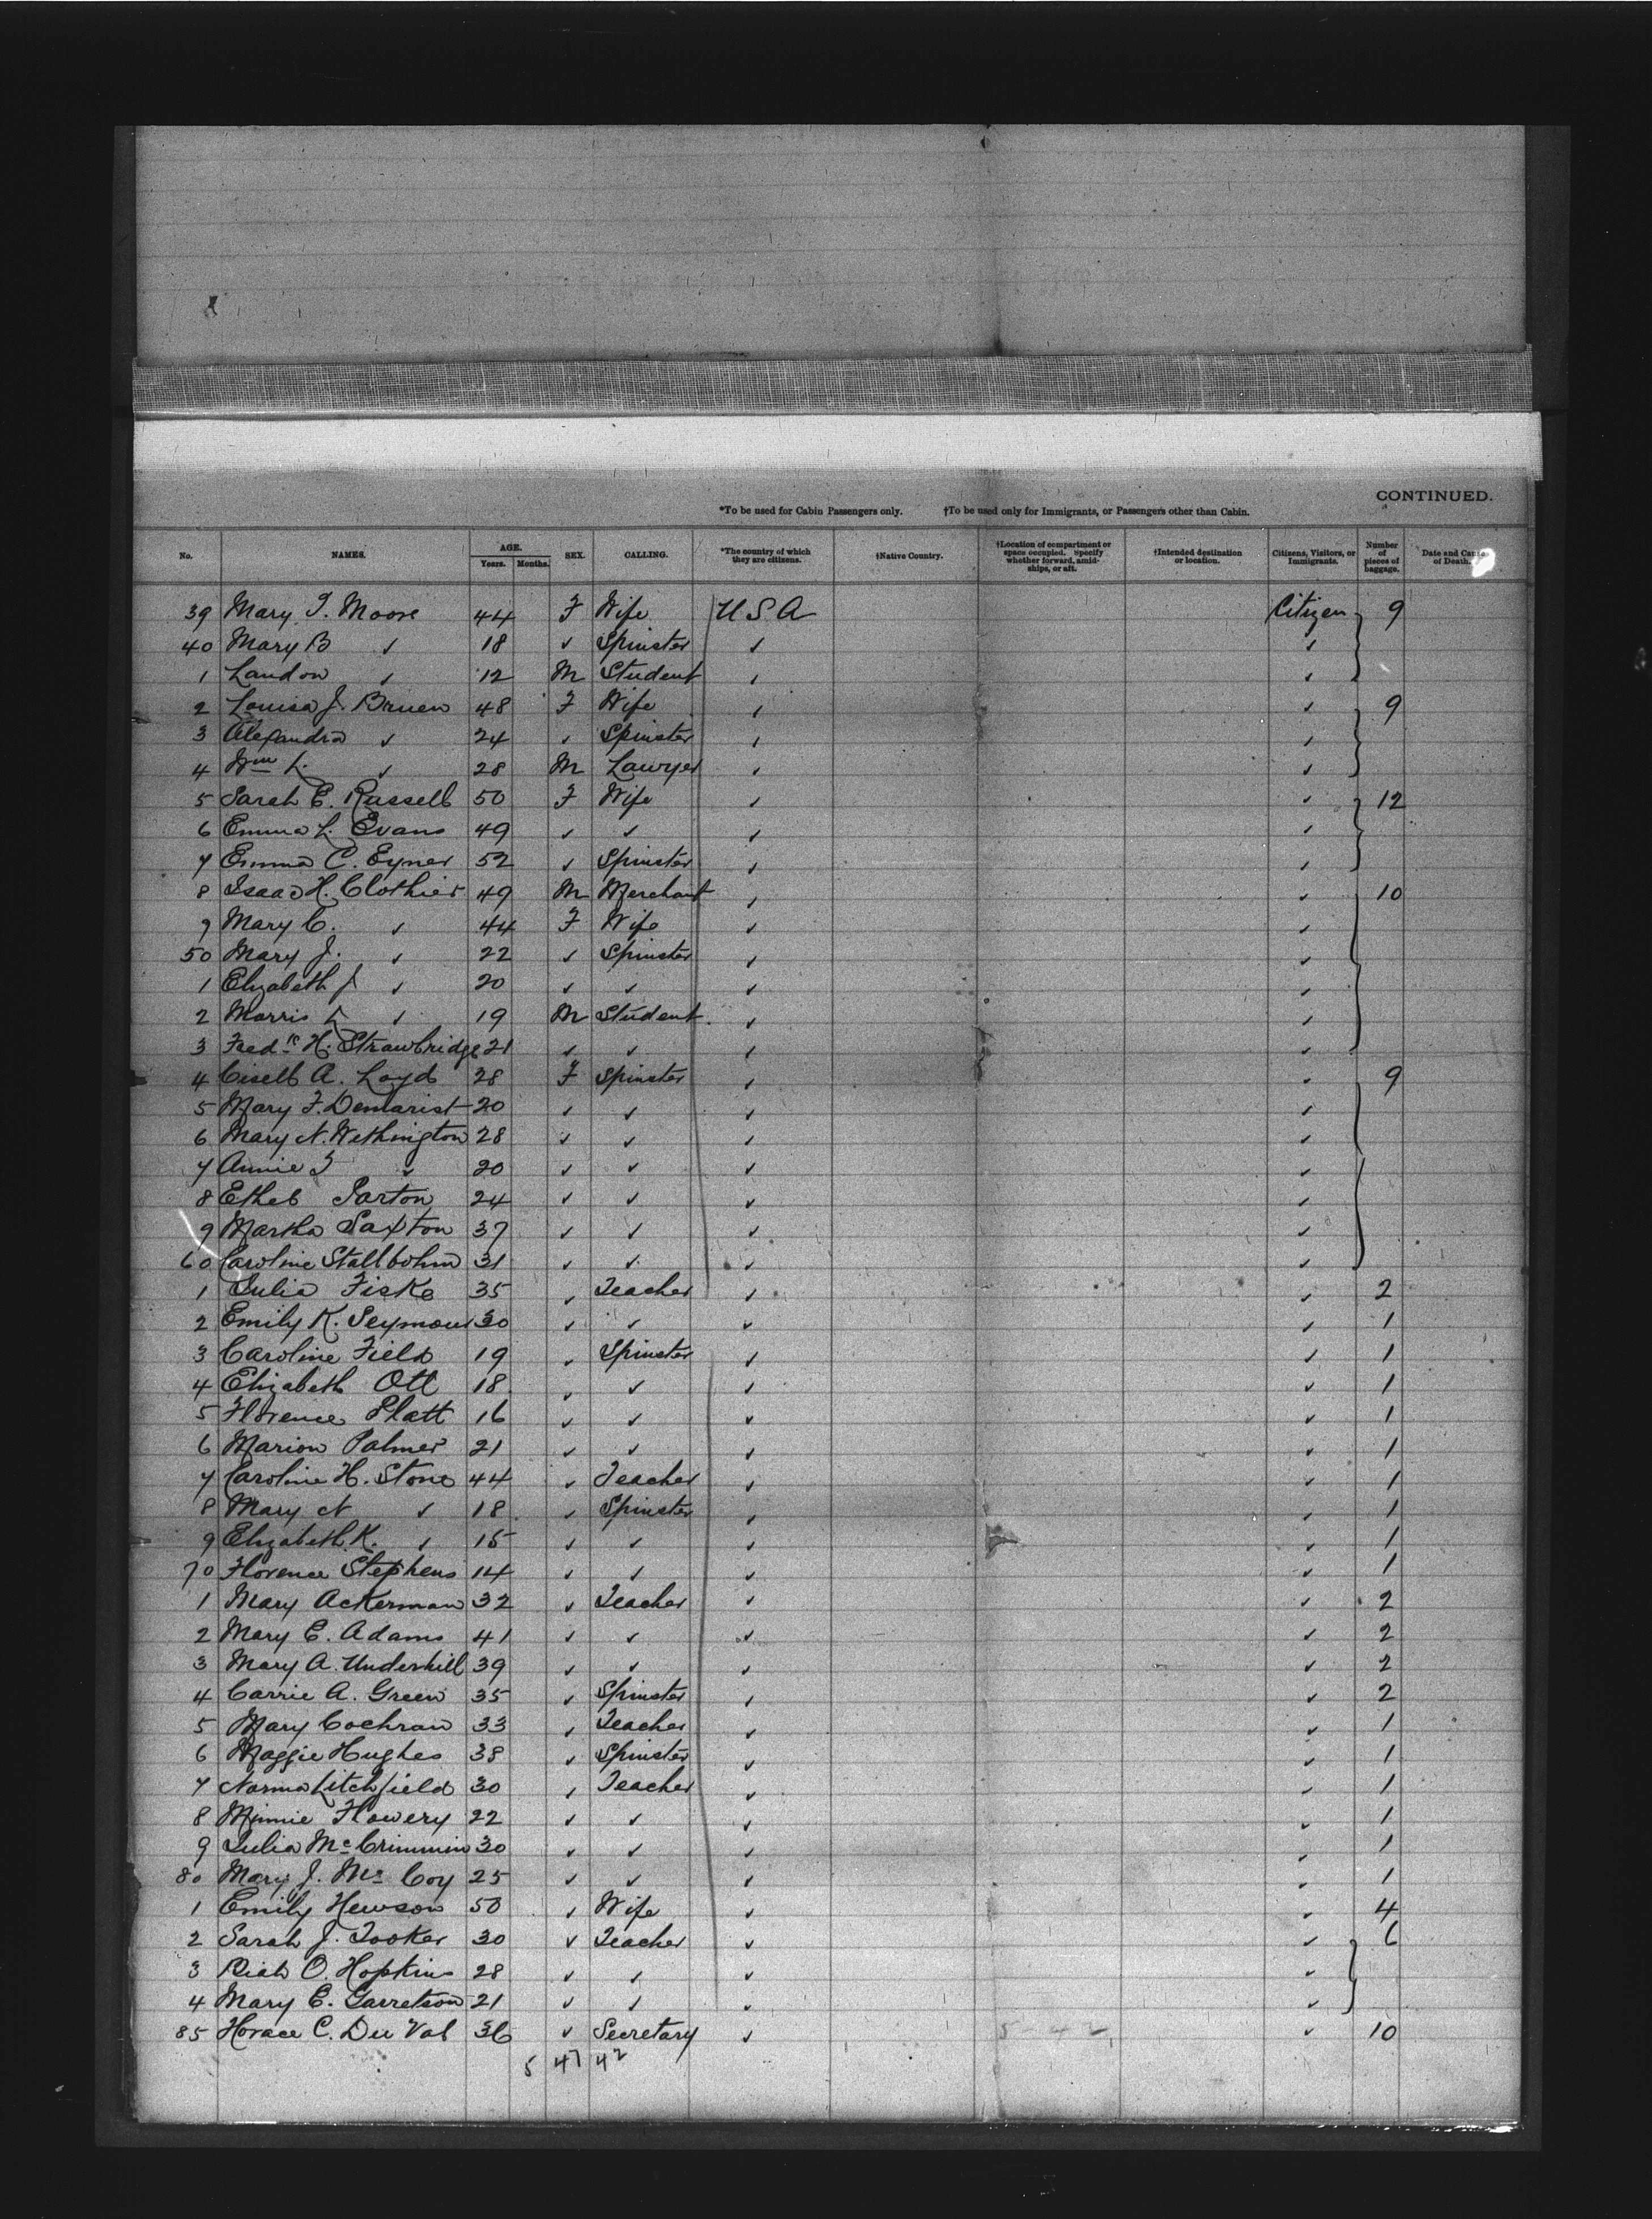 CONTINUED.
*To be used for Cabin Passengers only. †To be used only for Immigrants, or Passengers other than Cabin.
No. NAMES. AGE. Years. Months. SEX. CALLING. *The country of which they are citizens. †Native Country. †Location of compartment or space occupied. Specify whether forward, amidships, or aft. †Intended destination or location. Citizens, Visitors, or Immigrants. Number of pieces of baggage. Date and Cause of Death.
39 Mary T. Moore 44 F Wife U S A Citizen 9
40 Mary B ✓ 18 ✓ Spinster ✓ ✓
1 Landon ✓ 12 M Student ✓ ✓
2 Louisa J. Bruen 48 F Wife ✓ ✓ 9
3 Alexandra ✓ 24 ✓ Spinster ✓ ✓
4 Wm L. ✓ 28 M Lawyer ✓ ✓
5 Sarah E. Russell 50 F Wife ✓ ✓ 12
6 Emma L. Evans 49 ✓ ✓ ✓ ✓
7 Emma C. Eyner 52 ✓ Spinster ✓ ✓
8 Isaac H. Clothier 49 M Merchant ✓ ✓ 10
9 Mary C. ✓ 44 F Wife ✓ ✓
50 Mary J. ✓ 22 ✓ Spinster ✓ ✓
1 Elizabeth J ✓ 20 ✓ ✓ ✓ ✓
2 Morris L ✓ 19 M Student ✓ ✓
3 Fredk H. Strawbridge 21 ✓ ✓ ✓ ✓
4 A. Loyd 28 F Spinster ✓ ✓ 9
5 Mary F. Demarist 20 ✓ ✓ ✓ ✓
6 Mary N. Wethington 28 ✓ ✓ ✓ ✓
7 Annie T ✓ 20 ✓ ✓ ✓ ✓
8 Ethel Parton 24 ✓ ✓ ✓ ✓
9 Martha Saxton 37 ✓ ✓ ✓ ✓
60 Caroline Stallbohm 31 ✓ ✓ ✓ ✓
1 Julia Fiske 35 ✓ Teacher ✓ ✓ 2
2 Emily K. Seymour 30 ✓ ✓ ✓ ✓ 1
3 Caroline Field 19 ✓ Spinster ✓ ✓ 1
4 Elizabeth Ott 18 ✓ ✓ ✓ ✓ 1
5 Florence Platt 16 ✓ ✓ ✓ ✓ 1
6 Marion Palmer 21 ✓ ✓ ✓ ✓ 1
7 Caroline H. Stone 44 ✓ Teacher ✓ ✓ 1
8 Mary N ✓ 18 ✓ Spinster ✓ ✓ 1
9 Elizabeth K. ✓ 15 ✓ ✓ ✓ ✓ 1
70 Florence Stephens 14 ✓ ✓ ✓ ✓ 1
1 Mary Ackerman 32 ✓ Teacher ✓ ✓ 2
2 Mary E. Adams 41 ✓ ✓ ✓ ✓ 2
3 Mary A. Underhill 39 ✓ ✓ ✓ ✓ 2
4 Carrie A. Green 35 ✓ Spinster ✓ ✓ 2
5 Mary Cochran 33 ✓ Teacher ✓ ✓ 1
6 Maggie Hughes 38 ✓ Spinster ✓ ✓ 1
7 Norma Litchfield 30 ✓ Teacher ✓ ✓ 1
8 Minnie Flowery 22 ✓ ✓ ✓ ✓ 1
9 Julia McCrimmin 30 ✓ ✓ ✓ ✓ 1
80 Mary J. McCoy 25 ✓ ✓ ✓ ✓ 1
1 Emily Hewson 50 ✓ Wife ✓ ✓ 4
2 Sarah J. Tooker 30 ✓ Teacher ✓ ✓ 6
3 O. Hopkins 28 ✓ ✓ ✓ ✓
4 Mary E. Garretson 21 ✓ ✓ ✓ ✓
85 Horace C. Du Val 36 ✓ Secretary ✓ ✓ 10
5 47 42